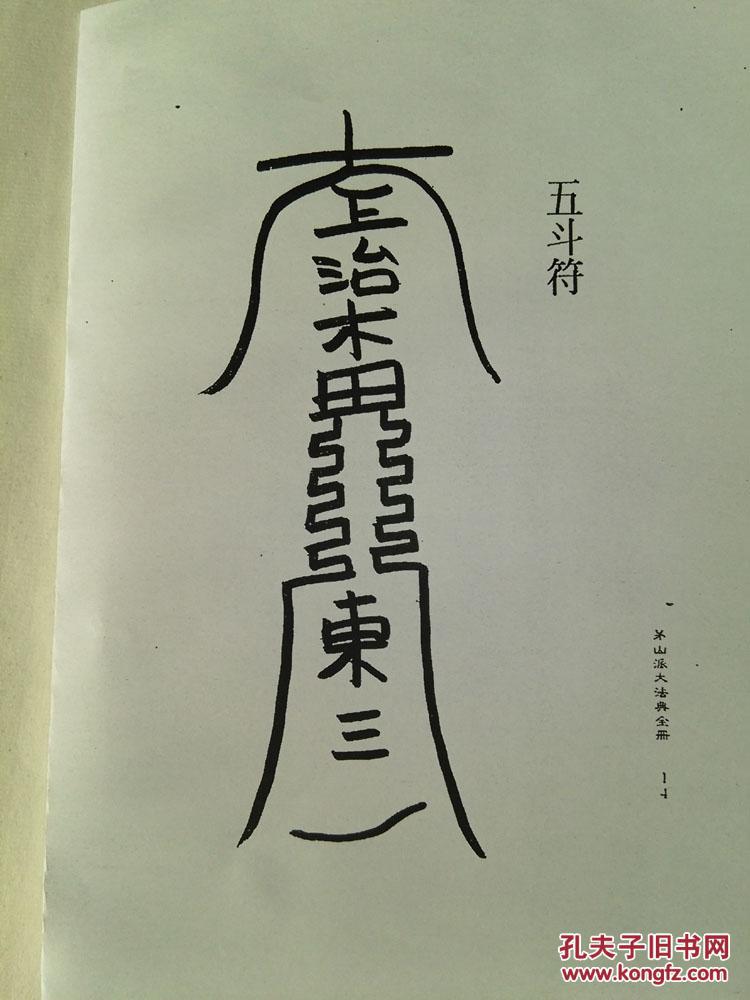 五斗符
上
治
木
東
三
茅山派大法典全冊
孔夫子旧书网
www.kongfz.com